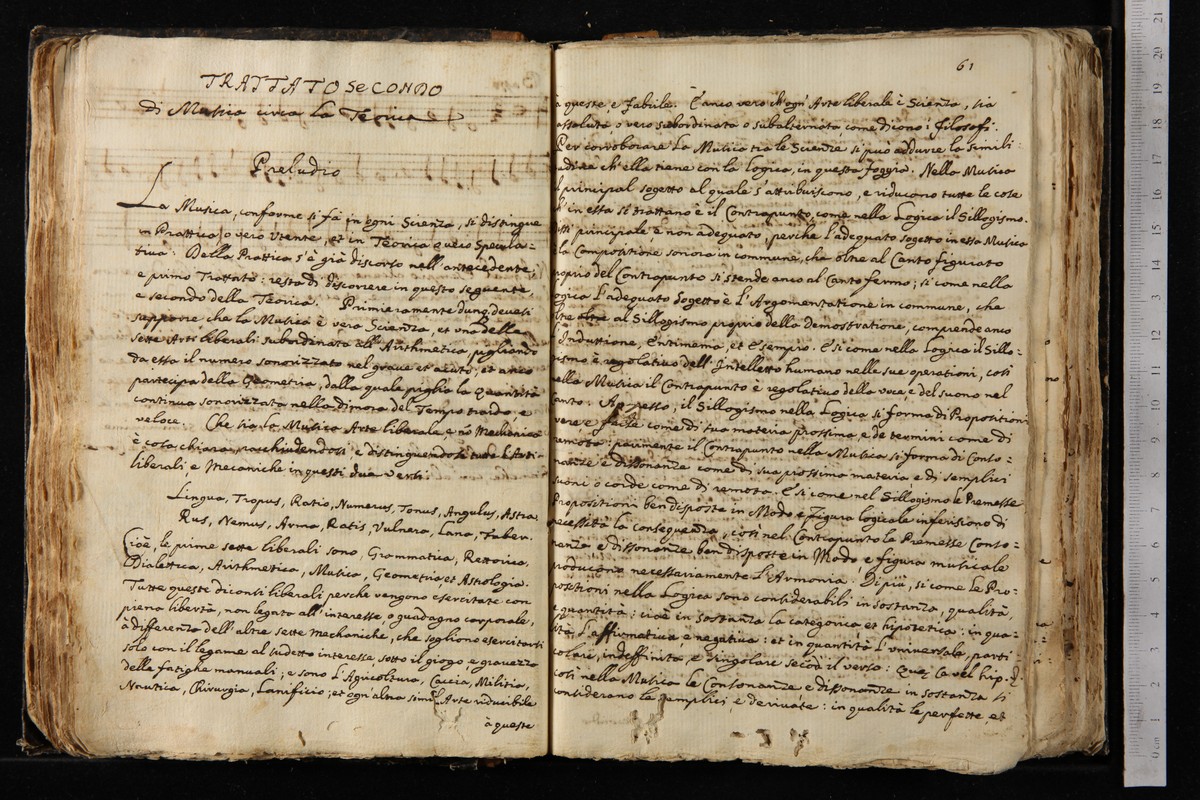 TRATTATO SECONDO
di Musica circa la Teorica
Preludio
La Musica, conforme si fà in ogni Scienza, si distingue
in Prattica, o vero Utente, et in Teorica o vero Specula=
tiva: Della Prattica s'è già discorso nell'antecedente,
e primo Trattato: resta di discorrere in questo seguente
e secondo della Teorica. Primieramente dunq. devesi
sapporre che la Musica è vera Scienza, et una delle
sette Arti liberali subordinata all'Arithmetica, pigliando
da essa il numero sonorizzato nel grave et acuto; et anco
partecipa della Geometria, dalla quale piglia la quantità
continua sonorizzata nella dimora del Tempo tardo, e
veloce. Che sia la Musica Arte liberale, e nò Mechanica
è cosa chiara, racchiudendosi, e distinguendosi tutte l'Arti
liberali, e Mecaniche in questi due versi.
Lingua, Tropus, Ratio, Numerus, Tonus, Angulus, Astra.
Rus, Nemus, Arma, Ratis, Vulnera, Lana, Faber.
Cioè, le prime sette liberali sono, Grammatica, Rettorica,
Dialettica, Arithmetica, Musica, Geometria, et Astrologia.
Tutte queste diconsi liberali perche vengono esercitate con
piena libertà, non legato all'interesse, o guadagno corporale,
à differenza dell'altre sette Mechaniche, che sogliono esercitarsi
solo con il legame al sudetto interesse, sotto il giogo, e gravezza
delle fatighe manuali; e sono l'Agricoltura, Caccia, Militia,
Nautica, Chirurgia, Lanificio; et ogn'altra simil Arte riducibile
à queste
61
a queste e Fabrile. E anco vero ch'ogn'Arte liberale è Scienza, sia
assoluta o vero subordinata o subalternata, come dicono i filosofi.
Per corroborare la Musica tra le Scienze si può addurre la simili=
tudine ch'ella tiene con la Logica, in questa foggia. Nella Musica
il principal sogetto al quale s'attribuiscono, e riducono tutte le cose
ch'in essa si trattano è il Contrapunto, come nella Logica il Sillogismo.
principale, e non adequato, perche l'adequato sogetto in essa Musica
la Compositione sonora in commune, che oltre al Canto figurato
proprio del Contrapunto si stende anco al Canto fermo; si come nella
Logica l'adequato sogetto è l'Argomentatione in commune, che
oltre al Sillogismo proprio della demostratione, comprende anco
l'Induttione, Entimema, et Esempio. E si come nella Logica il Sillo=
gismo è regolativo dell'Intelletto humano nelle sue operationi, così
nella Musica il Contrapunto è regolativo della voce, e del suono nel
canto. Appresso, il Sillogismo nella Logica si forma di Propositioni
vere e false come di sua materia prossima, e de termini come di
remota: parimente il Contrapunto nella Musica si forma di Conso=
nanze e dissonanze come di sua prossima materia e di semplici
suoni o corde come di remota. E si come nel Sillogismo le Premesse
Propositioni ben disposte in Modo e figura logicale inferiscono di
necessità la consequenza, così nel Contrapunto le Premesse Conso=
nanze e dissonanze ben disposte in Modo e figura musicale
producono necessariamente l'Armonia. Di più, si come le Pro=
positioni nella Logica sono considerabili in sostanza, qualità,
e quantità: cioè in sostanza la categorica, et hipotetica: in qua=
lità l'affirmativa, e negativa: et in quantità l'universale, parti
colare, indeffinita, e singolare secōd il verso: Quae, Ca vel hip.
così nella Musica le Consonanze e dissonanze in sostanza si
considerano le semplici, e derivate: in qualità le perfette, et